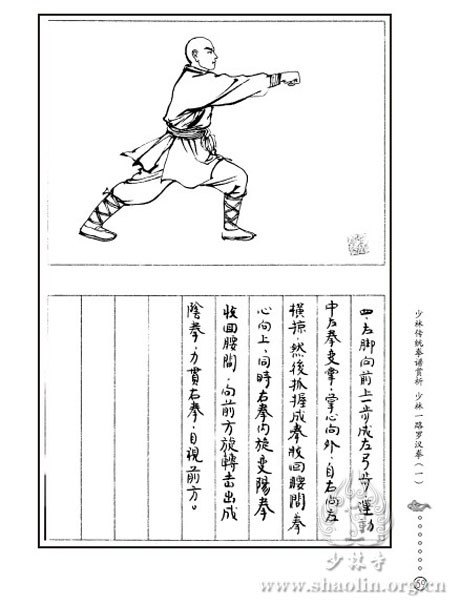 四、左脚向前上一步成左弓步運動
中左拳变掌，掌心向外，自右向左
横掠，然後抓握成拳收回腰間拳
心向上，同時右拳内旋变陽拳
收回腰間，向前方旋轉击出成
陰拳，力貫右拳，目視前方。
少林传统拳谱赏析 少林一路罗汉拳（一）
59
少林寺
www.shaolin.org.cn